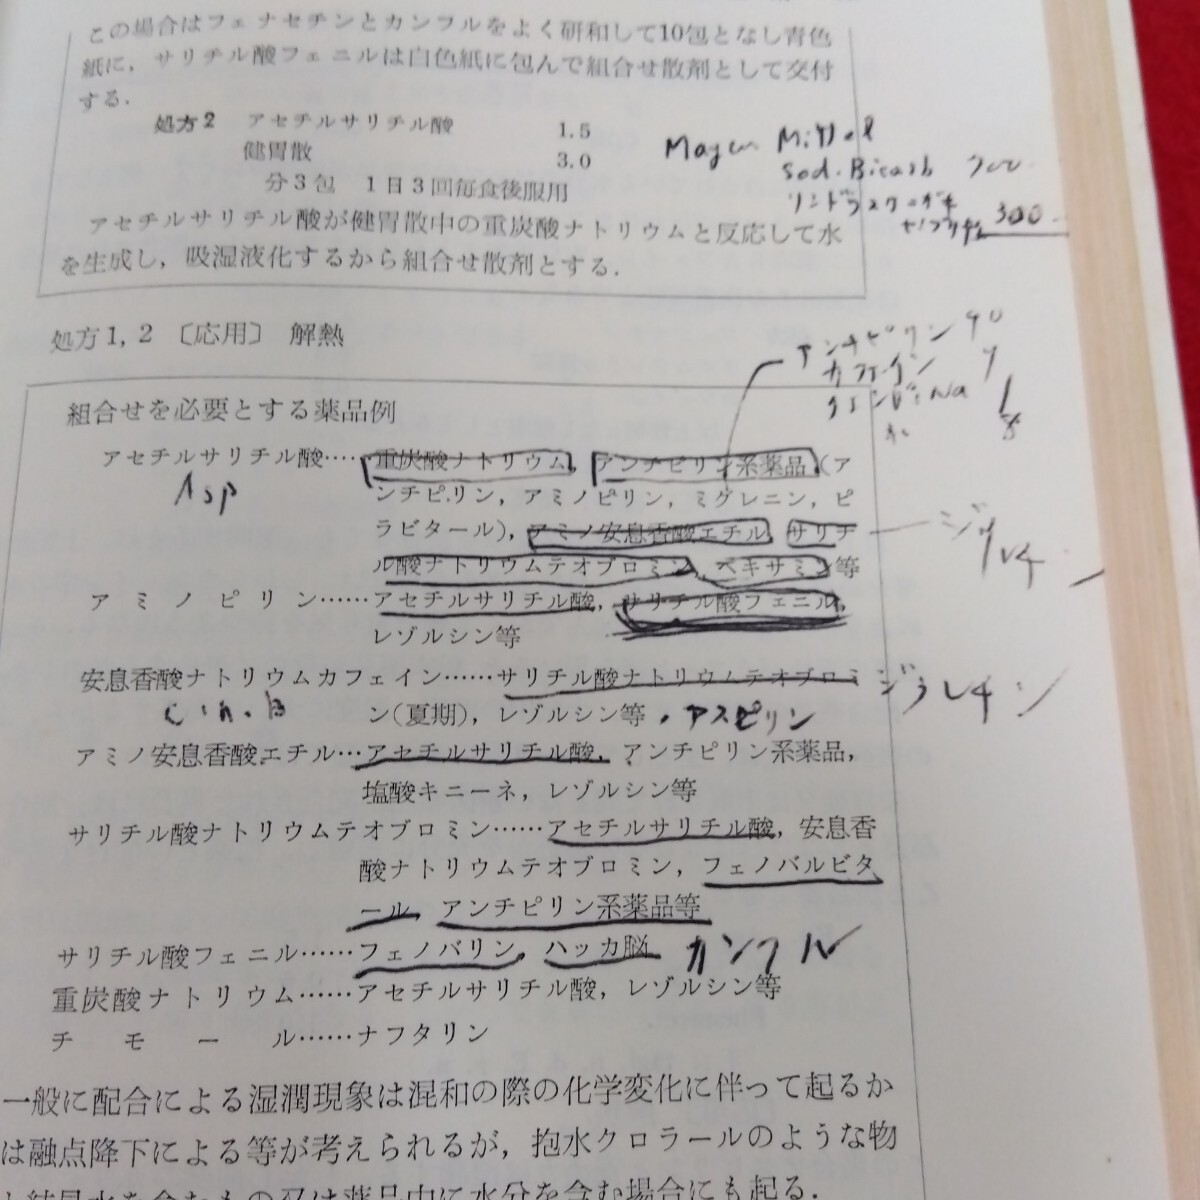 この場合はフェナセチンとカンフルをよく研和して10包となし青色
紙に，サリチル酸フェニルは白色紙に包んで組合せ散剤として交付
する．
処方2 アセチルサリチル酸 1.5
健胃散 3.0
分3包 1日3回毎食後服用
アセチルサリチル酸が健胃散中の重炭酸ナトリウムと反応して水
を生成し，吸湿液化するから組合せ散剤とする．
Magen Mittel
Sod. Bicarb
300
処方1, 2 〔応用〕 解熱
アンチピリン 90
カフェイン
組合せを必要とする薬品例
アセチルサリチル酸‥‥重炭酸ナトリウム，アンチピリン系薬品（ア
Asp
ンチピリン，アミノピリン，ミグレニン，ピ
ラビタール），アミノ安息香酸エチル，サリチ
ル酸ナトリウムテオブロミン，ヘキサミン等
アミノピリン……アセチルサリチル酸，サリチル酸フェニル，
レゾルシン等
安息香酸ナトリウムカフェイン……サリチル酸ナトリウムテオブロミ ジウレチン
C.n.B ン(夏期)，レゾルシン等，アスピリン
アミノ安息香酸エチル…アセチルサリチル酸，アンチピリン系薬品，
塩酸キニーネ，レゾルシン等
サリチル酸ナトリウムテオブロミン……アセチルサリチル酸，安息香
酸ナトリウムテオブロミン，フェノバルビタ
ール，アンチピリン系薬品等
サリチル酸フェニル……フェノバリン，ハッカ脳 カンフル
重炭酸ナトリウム……アセチルサリチル酸，レゾルシン等
チモール……ナフタリン
一般に配合による湿潤現象は混和の際の化学変化に伴って起るか
は融点降下による等が考えられるが，抱水クロラールのような物
結晶水を含むもの又は薬品中に水分を含む場合にも起る．